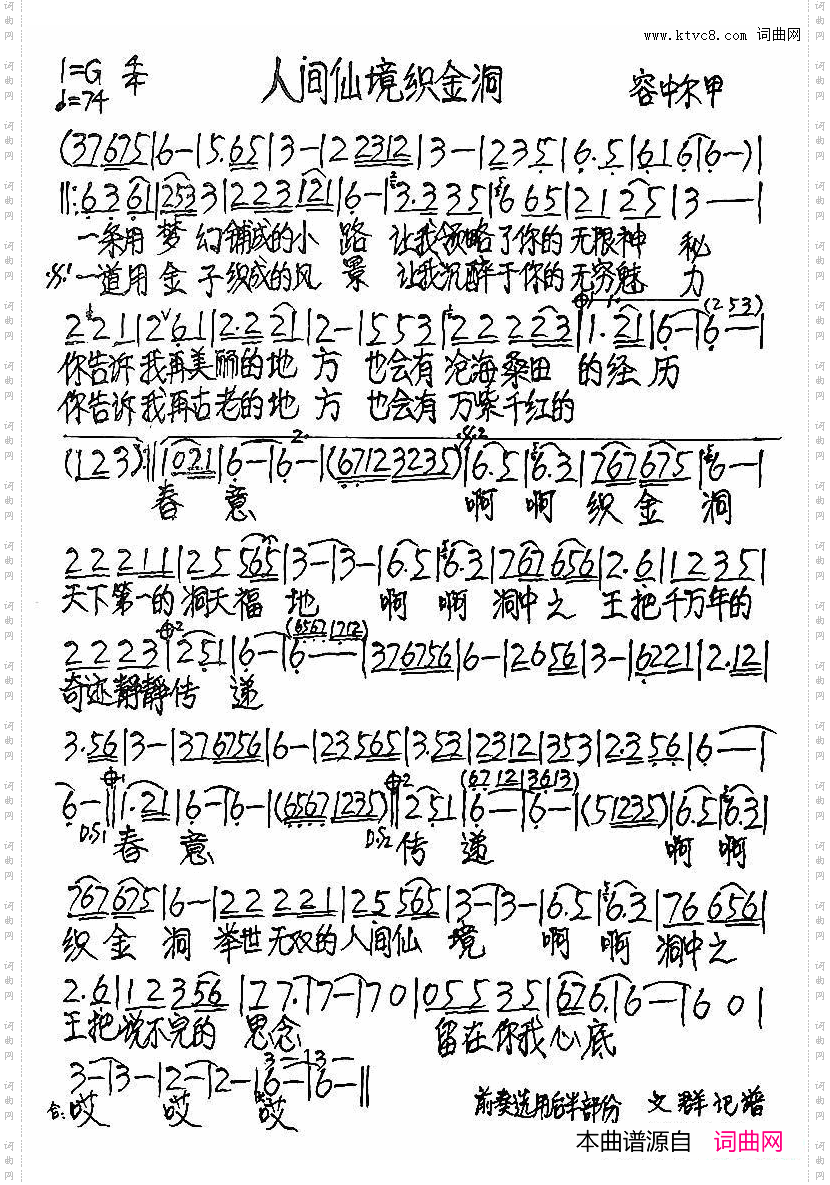 www.ktvc8.com 词曲网
1=G 4/4
♩=74
人间仙境织金洞
容中尔甲
(37675|6-|5.65|3-|22312|3-|235|6.5|616|6-)|
||:636|2533|223121|6-|3.335|665|2125|3--|
一条用梦幻铺成的小路 让我领略了你的无限神秘
一道用金子织成的风景 让我沉醉于你的无穷魅力
2221|2 61|2.221|2-|553|22223|1.21|6-|6--|
(253)
你告诉我再美丽的地方 也会有沧海桑田的经历
你告诉我再古老的地方 也会有万紫千红的
(123):||1021|6-|6-|(67123235)|6.5|6.3|767675|6-|
春意 啊啊织金洞
22211|25565|3-|3-|6.5|6.3|767656|2.6|1235|
天下第一的洞天福地 啊啊洞中之王把千万年的
2223|251|6-|6--|376756|6-|2056|3-|6221|2.12|
(6567|1712)
奇迹静静传递
3.56|3-|376756|6-|23565|3.53|2312|353|2.356|6--|
6-||1.21|6-|6-|(6567|1235)||251|6-|6-|(51235)|6.5|6.3|
(6712|3613)
D.S1 春意 D.S2 传递 啊啊
767675|6-|222221|25565|3-|3-|6.5|6.3|76656|
织金洞 举世无双的人间仙境 啊啊洞中之
2.6|12356|77.|7-|70|05535|676.|6-|60|
王把说不完的思念 留在你我心底
3-|3-|2-|2-|6-|6-||
3-|3-
合:哎 哎 哎
前奏选用后半部份 文群记谱
本曲谱源自 词曲网
词曲网